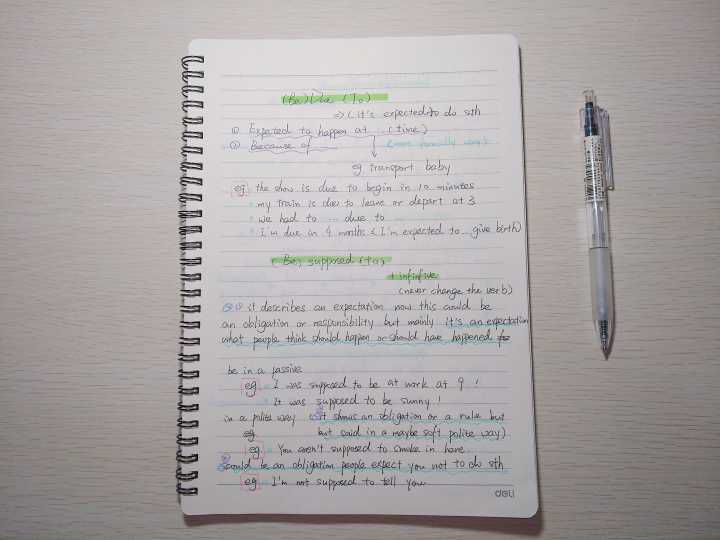 (Be) Due (To)
⇒ ( it's expected to do sth
① Expected to happen at ... (time)
② Because of ...
eg transport baby
eg. the show is due to begin in 10 minutes
my train is due to leave or depart at 3
we had to ... due to ...
I'm due in 4 months ( I'm expected to ... give birth)
( Be) supposed (to)
+ infinfive
(never change the verb)
it describes an expectation now this could be
an obligation or responsibility but mainly it's an expectation
what people think should happen or should have happened
be in a passive
eg. I was supposed to be at work at 9 !
It was supposed to be sunny !
in a polite way it shows an obligation or a rule but
eg but said in a maybe soft polite way)
eg. You aren't supposed to smoke in here.
could be an obligation people expect you not to do sth
eg. I'm not supposed to tell you
deli